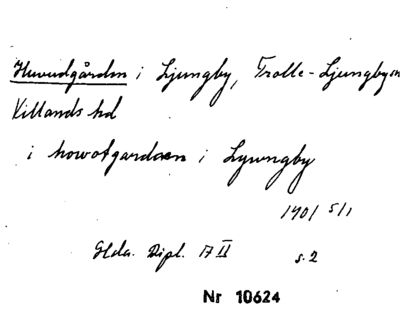 Huvudgården i Ljungby, Trolle-Ljungby sn
Villands hd
i howotgardaen i Lywngby
1401 5/1
Glda. Dipl. A II s. 2
Nr 10624